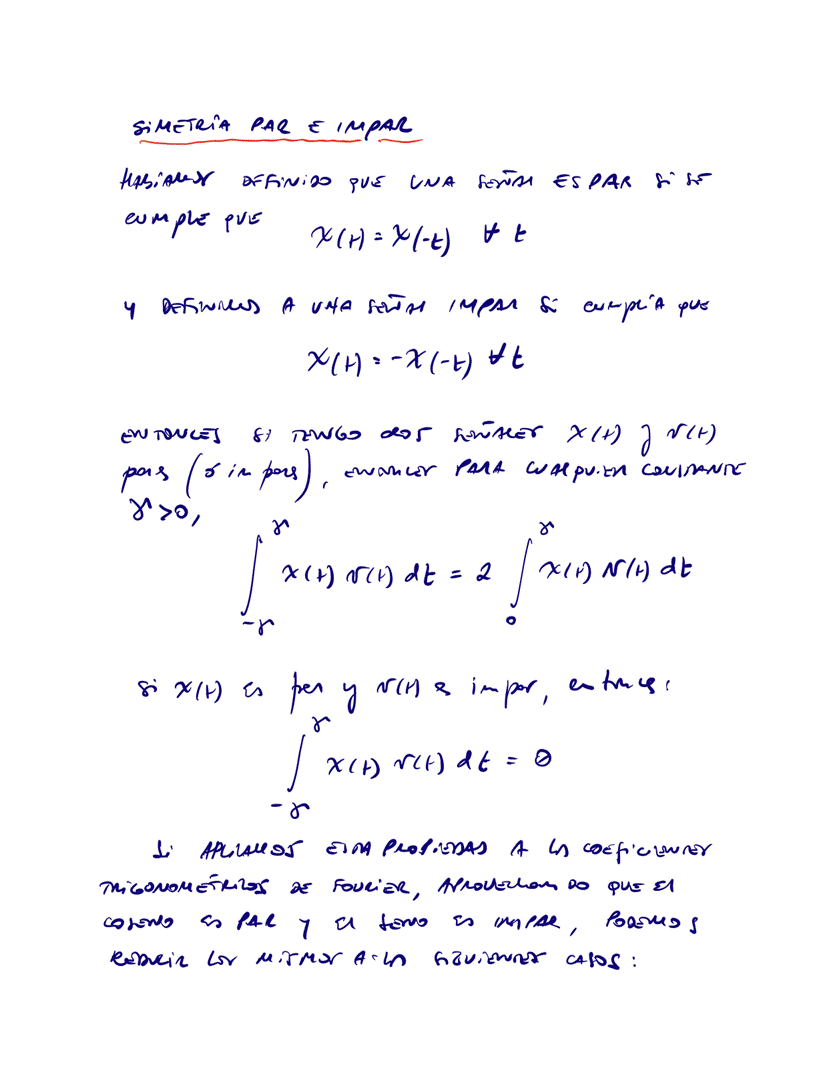 SIMETRÍA PAR E IMPAR
HABÍAMOS DEFINIDO QUE UNA SEÑAL ES PAR SI SE
CUMPLE QUE
x(t) = x(-t) ∀ t
Y DEFINIMOS A UNA SEÑAL IMPAR SI CUMPLÍA QUE
x(t) = -x(-t) ∀ t
ENTONCES SI TENGO DOS SEÑALES x(t) y v(t)
pares (ó impares), ENTONCES PARA CUALQUIER CONSTANTE
γ > 0,
∫_{-γ}^{γ} x(t) v(t) dt = 2 ∫_{0}^{γ} x(t) v(t) dt
Si x(t) es par y v(t) es impar, entonces:
∫_{-γ}^{γ} x(t) v(t) dt = 0
Si APLICAMOS ESTA PROPIEDAD A LOS COEFICIENTES
TRIGONOMÉTRICOS DE FOURIER, APROVECHANDO QUE EL
COSENO ES PAR Y EL SENO ES IMPAR, PODEMOS
REDUCIR LOS MISMOS A LOS SIGUIENTES CASOS: